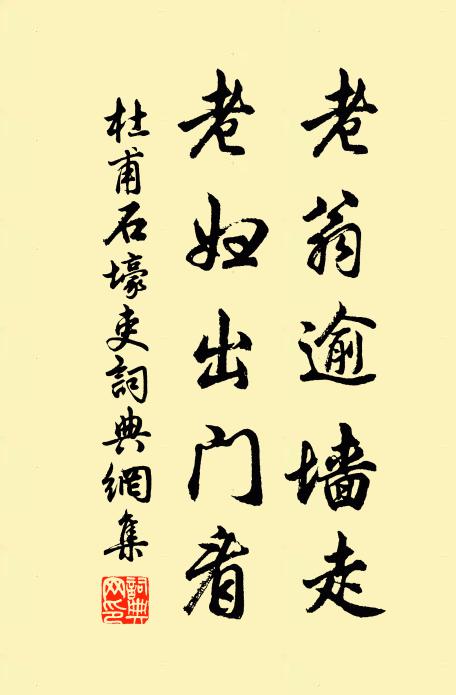 老翁逾墙走
老妇出门看
杜甫石壕吏詞典網集
詞典網印